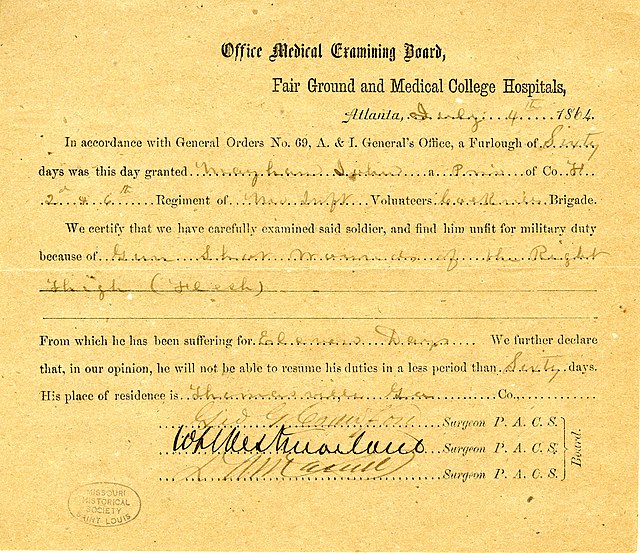 Office Medical Examining Board,
Fair Ground and Medical College Hospitals,
Atlanta, July 4th 1864.
In accordance with General Orders No. 69, A. & I. General's Office, a Furlough of Sixty
days was this day granted John a Priv of Co. H.
2d & 6th Regiment of Mo Inft Volunteers Cockrell Brigade.
We certify that we have carefully examined said soldier, and find him unfit for military duty
because of Gun Shot Wounds of the Right
Thigh (Flesh)
From which he has been suffering for Eleven Days We further declare
that, in our opinion, he will not be able to resume his duties in a less period than Sixty days.
His place of residence is Thomasville Ga Co.,
Geo. G. Crawford Surgeon P. A. C. S.
W F Westmoreland Surgeon P. A. C. S.
Surgeon P. A. C. S.
Board.
MISSOURI
HISTORICAL
SOCIETY
SAINT LOUIS